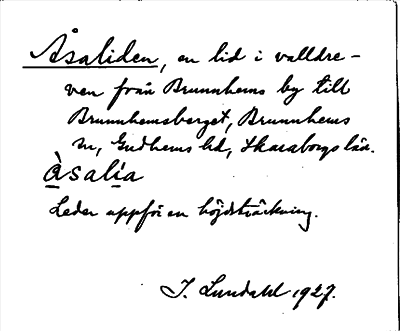 Åsaliden, en lid i valldre-
ven från Brunnhems by till
Brunnhemsberget, Brunnhems
sn, Gudhems hd, Skaraborgs län.
Åsalia
Leder uppför en höjdsträckning.
I. Lundahl 1927.